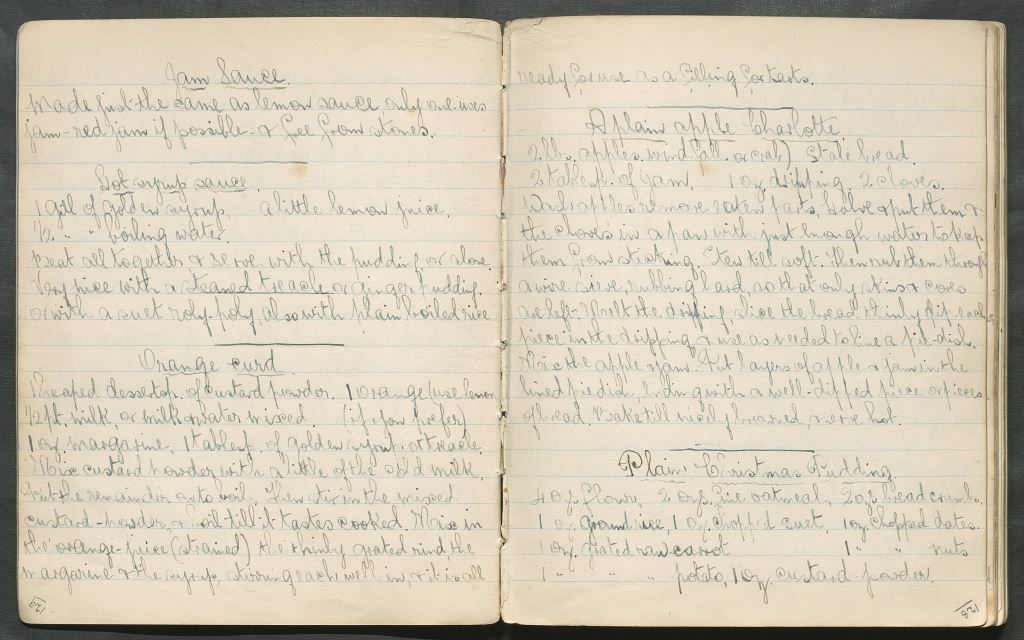 Jam Sauce.
Made just the same as lemon sauce only one uses
jam - red jam if possible - & free from stones.
Hot syrup sauce.
1 gill of golden syrup, a little lemon juice.
1/2 " " boiling water.
Beat all together & serve with the pudding or alone.
Very nice with a steamed treacle or ginger pudding.
or with a suet roly-poly also with plain boiled rice
Orange curd.
1 heaped dessertsp. of custard powder. 1 orange (use lemon
1/2 pt. milk, or milk & water mixed. (if you prefer)
1 oz. margarine. 1 tablesp. of golden syrup or treacle.
Mix custard powder with a little of the cold milk.
Put the remainder on to boil, then stir in the mixed
custard-powder, & boil till it tastes cooked. Mix in
the orange-juice (strained) the thinly grated rind the
margarine & the syrup, stirring each well in, & it is all
129
ready for use as a filling for tarts.
A plain apple Charlotte
2 lbs. apples, wind fall or crab) Stale bread.
2 tablesp. of jam, 1 oz dripping, 2 cloves.
Wash apples remove rotten parts, halve & put them &
the cloves in a pan with just enough water to keep
them from sticking. Stew till soft. Then rub them through
a wire sieve, rubbing hard, so that only skins & cores
are left. Melt the dripping, slice the bread thinly dip each
piece in the dripping & use as needed to line a pie-dish.
Mix the apple & jam. Put layers of apple & jam in the
lined pie dish, ending with a well-dipped piece or pieces
of bread. Bake till nicely browned, serve hot.
Plain Christmas Pudding
4 ozs flour, 2 ozs fine oatmeal, 2 ozs breadcrumbs.
1 oz ground rice, 1 oz chopped suet, 1 oz chopped dates.
1 oz grated raw carrot 1 " " nuts
1 " " " potato, 1 oz. custard powder.
128